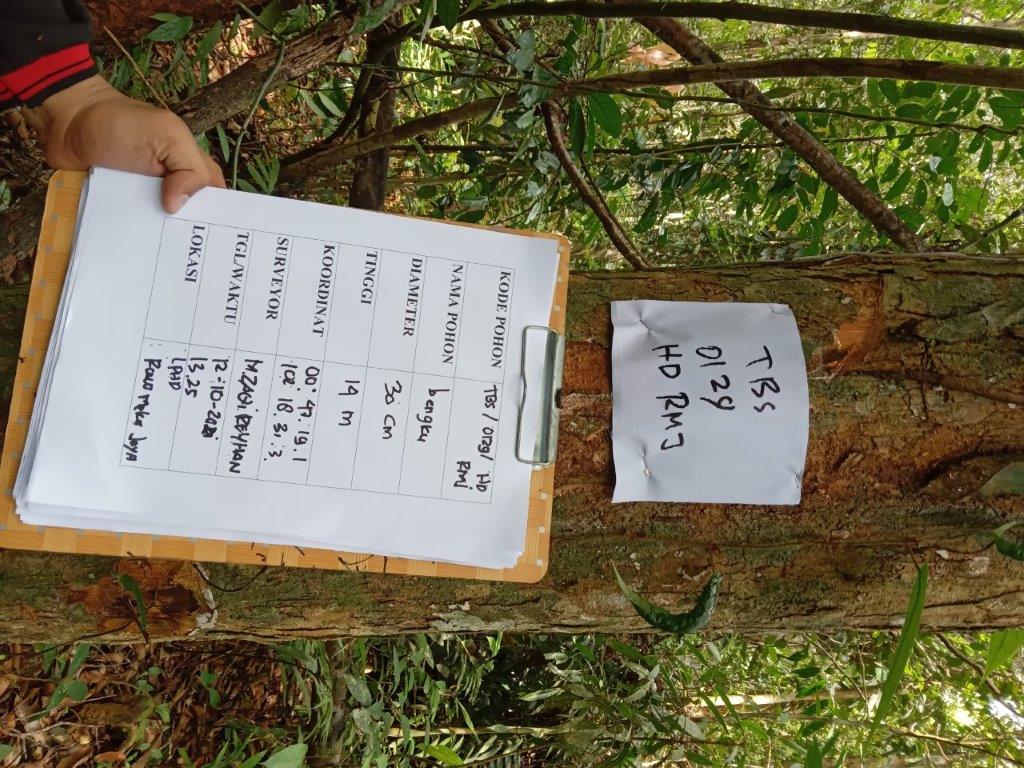 TBS
0129
HD RMJ
KODE POHON TBS / 0129/ HD
RMJ
NAMA POHON bengku
DIAMETER 30 cm
TINGGI 19 m
KOORDINAT 00° 47. 19. 1
18. 31. 3.
SURVEYOR M.ZAQI REYHAN
TGL/WAKTU 12-10-
13.25
LOKASI LPHD
Rawa Mekar Jaya